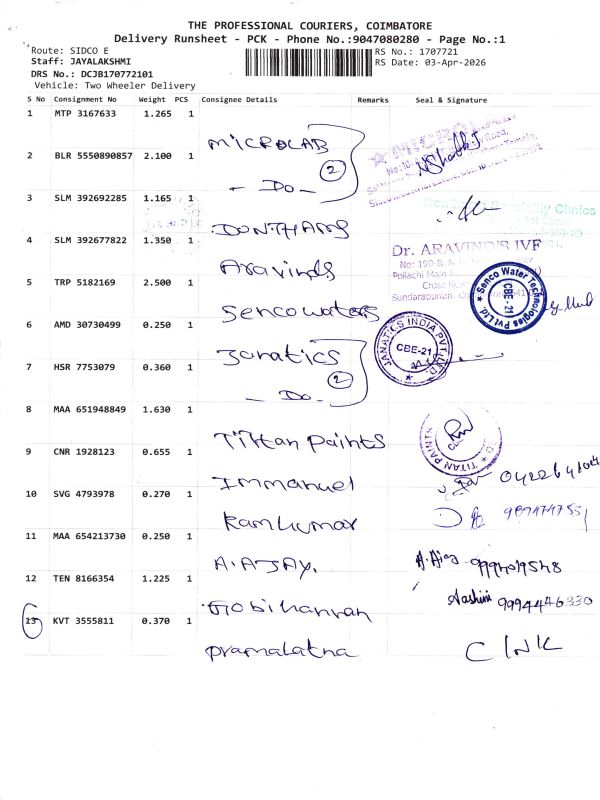 THE PROFESSIONAL COURIERS, COIMBATORE
Delivery Runsheet - PCK - Phone No.:9047080280 - Page No.:1
Route: SIDCO E
RS No.: 1707721
Staff: JAYALAKSHMI
RS Date: 03-Apr-2026
DRS No.: DCJB170772101
Vehicle: Two Wheeler Delivery
S No Consignment No Weight PCS Consignee Details Remarks Seal & Signature
1 MTP 3167633 1.265 1
MICROLAB
2 BLR 5550890857 2.100 1
2
- Do -
3 SLM 392692285 1.165 1
Clinics
4 SLM 392677822 1.350 1
Dr. ARAVIND'S IVF
Aravinds
Pollachi Main
5 TRP 5182169 2.500 1
Sundarapuram,
Senco Water Technologies Pvt Ltd. CBE-21
Sencowaters
6 AMD 30730499 0.250 1
JANATICS INDIA PVT. LTD. CBE-21
Janatics
7 HSR 7753079 0.360 1
2
- Do -
8 MAA 651948849 1.630 1
TITAN PAINTS
9 CNR 1928123 0.655 1
Immanuel
10 SVG 4793978 0.270 1
Ramkumar
11 MAA 654213730 0.250 1
A.AJAY.
12 TEN 8166354 1.225 1
9994446330
13 KVT 3555811 0.370 1